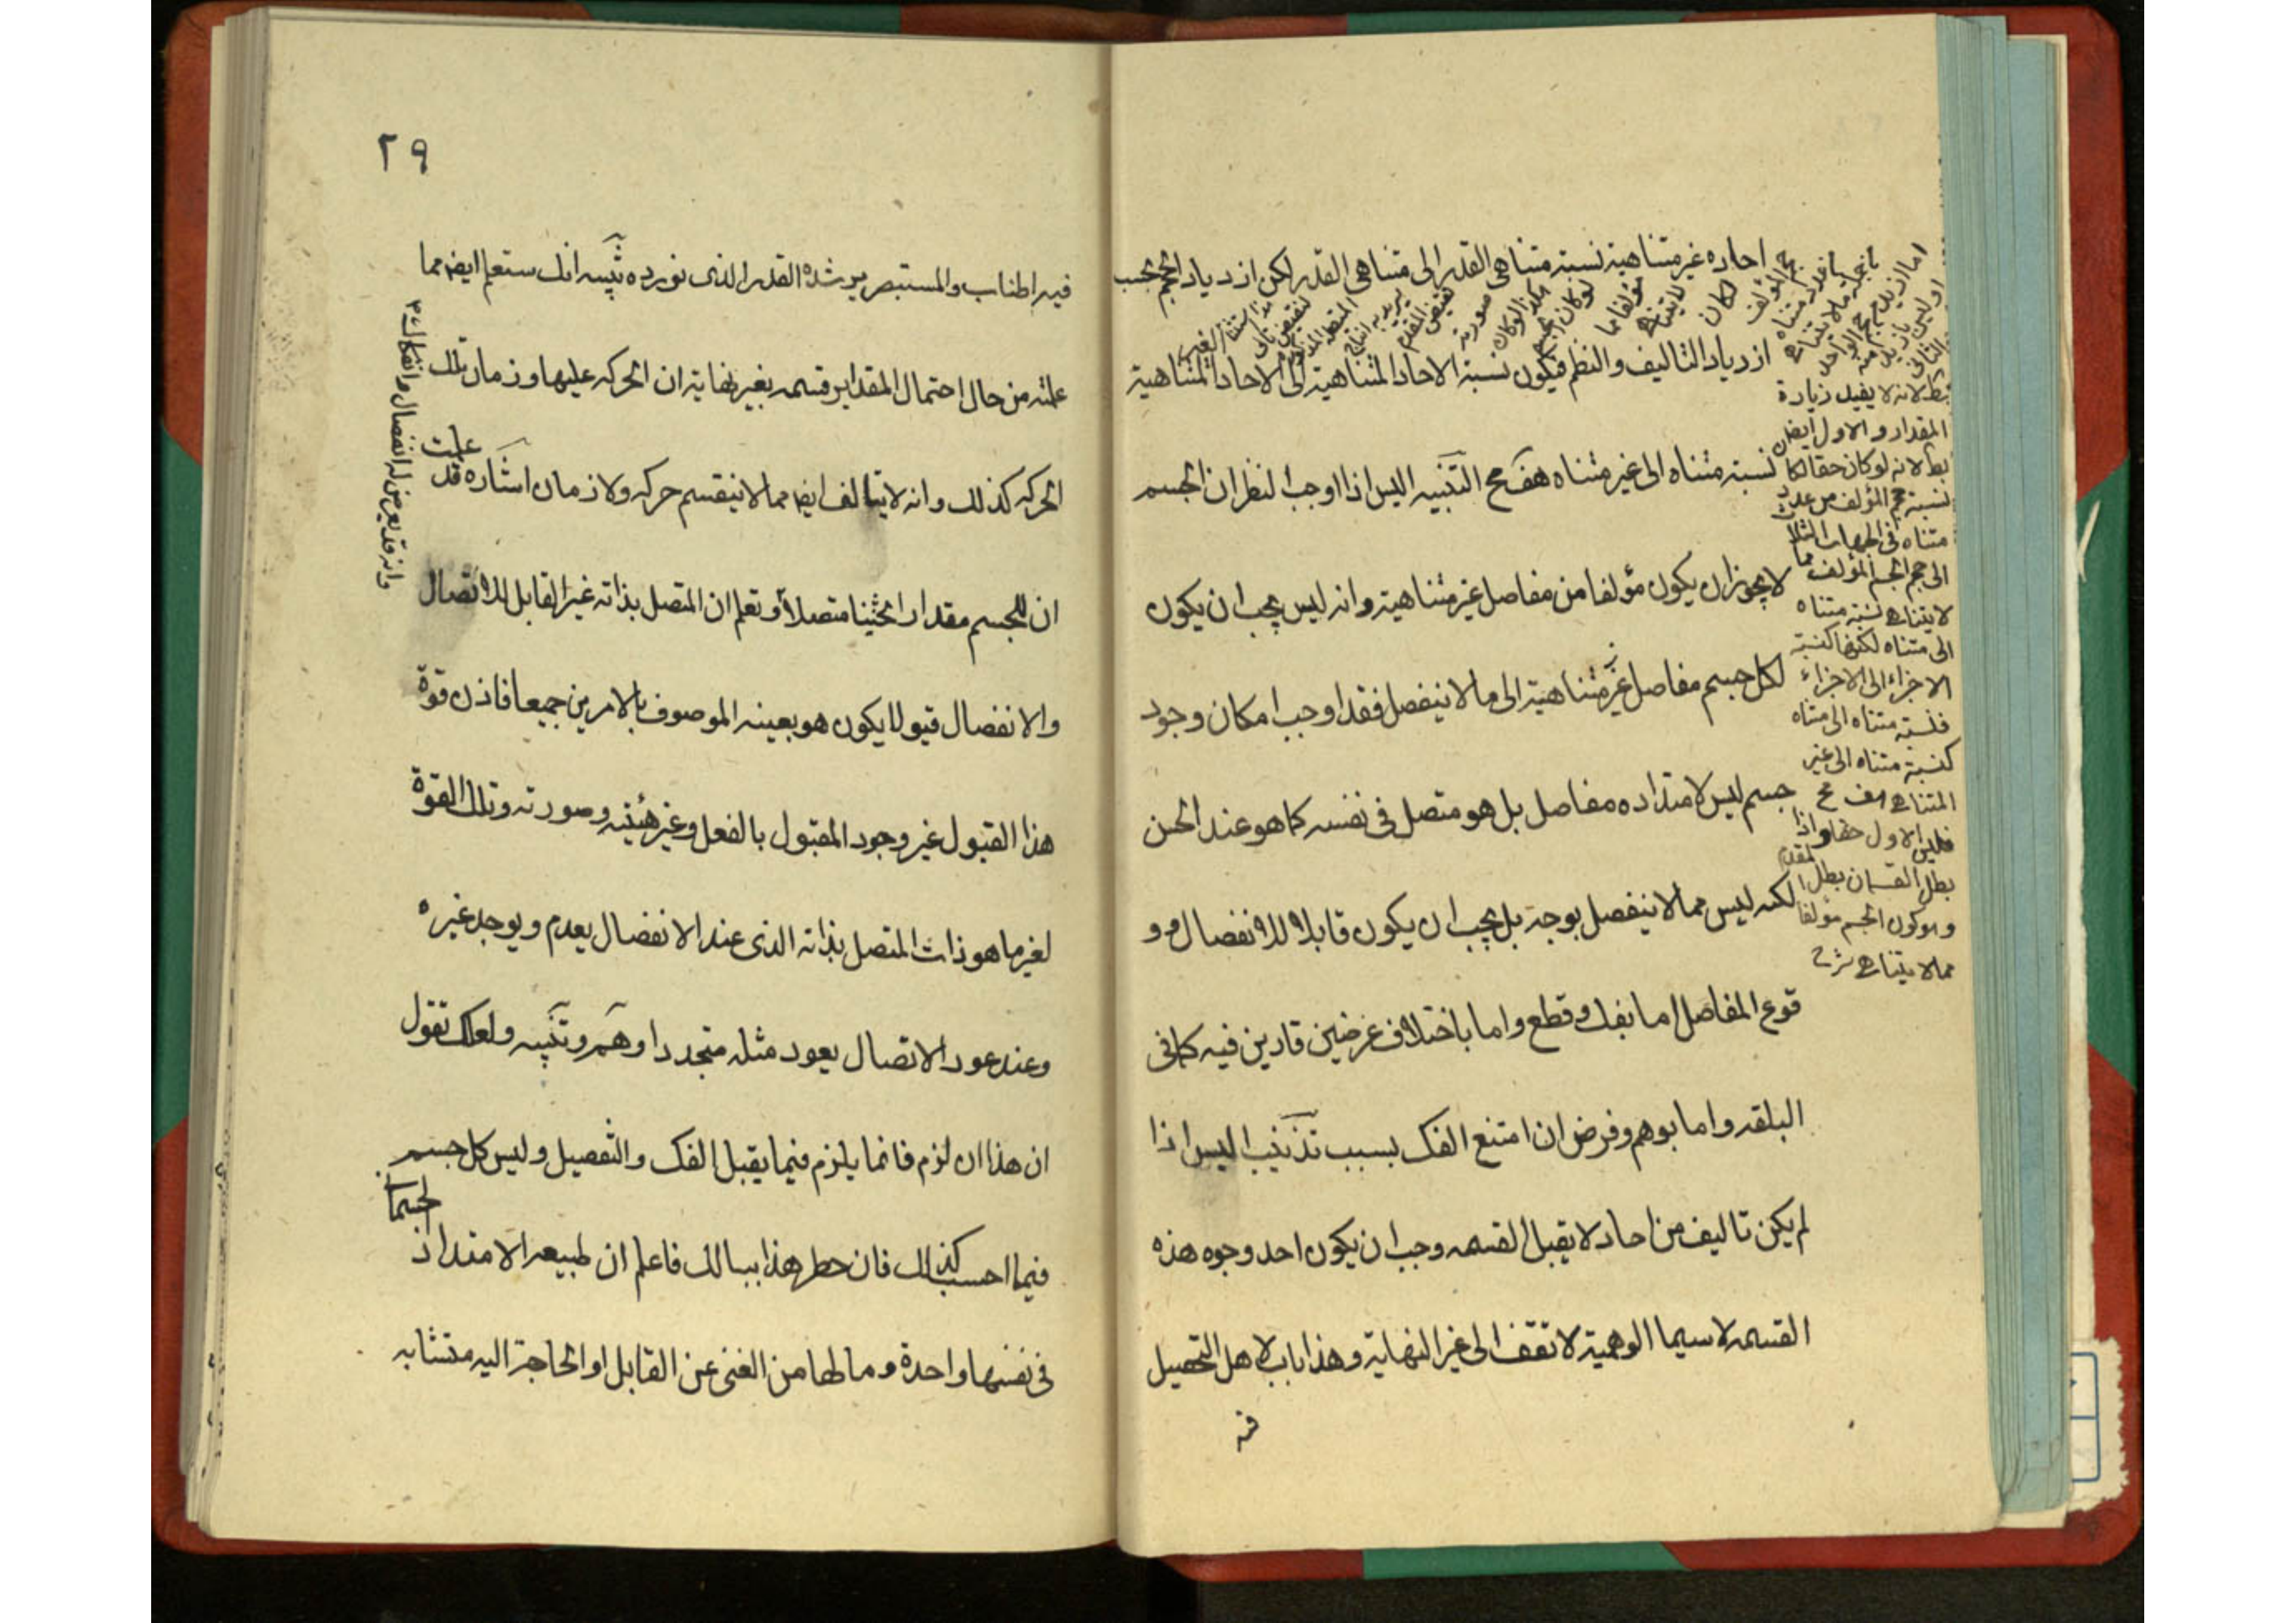 احاده غير متناهية نسبة متناهى القدر الى متناهى القدر لكن ازدياد الحجم بحسب
ازدياد التاليف والنظم فيكون نسبة الاحاد المتناهية الى الاحاد المتناهية
نسبة متناه الى غير متناه هف مح التنبيه اليس اذا اوجب النظر ان الجسم
لا يجوز ان يكون مؤلفا من مفاصل غير متناهية وانه ليس يجب ان يكون
لكل جسم مفاصل غير متناهية الى ما لا ينفصل فقد اوجب امكان وجود
جسم ليس لامتداده مفاصل بل هو متصل فى نفسه كما هو عند الحس
لكنه ليس مما لا ينفصل بوجه بل يجب ان يكون قابلا للانفصال و و
قوع المفاصل اما بفك وقطع واما باختلاف عرضين قارين فيه كما فى
البلقه واما بوهم وفرض ان امتنع الفك بسبب تذنيب اليس اذا
لم يكن تاليف من احاد لا يقبل القسمه وجب ان يكون احد وجوه هذه
القسمه لا سيما الوهمية لا تقف الى غير النهاية وهذا باب لاهل التحصيل
فيه
بط لانه لا يفيد زيادة
المقدار والاول ايض
بط لانه لو كان حقا لكان
نسبة حجم المؤلف من عدد
متناه فى الجهات الثلاث
الى حجم الجسم المؤلف مما
لا يتناهى نسبة متناه
الى متناه لكنها كنسبة
الاجزاء الى الاجزاء
فنسبة متناه الى متناه
كنسبة متناه الى غير
المتناهى هف مح
فليس الاول حقا واذا
بطل القسمان بطل المقدم
وهو كون الجسم مؤلفا
مما لا يتناهى شرح
٢٩
فيه اطناب والمستبصر يرشده القدر الذى نورده تنبيه انك ستعلم ايض مما
علمته من حال احتمال المقادير قسمه بغير نهاية ان الحركه عليها وزمان تلك
الحركه كذلك وانه لا يتالف ايض مما لا ينقسم حركه ولا زمان اشاره قد علمت
ان للجسم مقدارا ثخينا متصلا وتعلم ان المتصل بذاته غير القابل للاتصال
والانفصال قبولا يكون هو بعينه الموصوف بالامرين جميعا فاذن قوة
هذا القبول غير وجود المقبول بالفعل وغير هيئته وصورته وتلك القوة
لغير ما هو ذات المتصل بذاته الذى عند الانفصال يعدم ويوجد غيره
وعند عود الاتصال يعود مثله متجددا وهم وتنبيه ولعلك تقول
ان هذا ان لزم فانما يلزم فيما يقبل الفك والتفصيل وليس كل جسم
فيما احسب كذلك فان خطر هذا ببالك فاعلم ان طبيعه الامتداد
فى نفسها واحدة وما لها من الغنى عن القابل او الحاجة اليه متشابه
وانه قد يعرض له انفصال وانفكاك